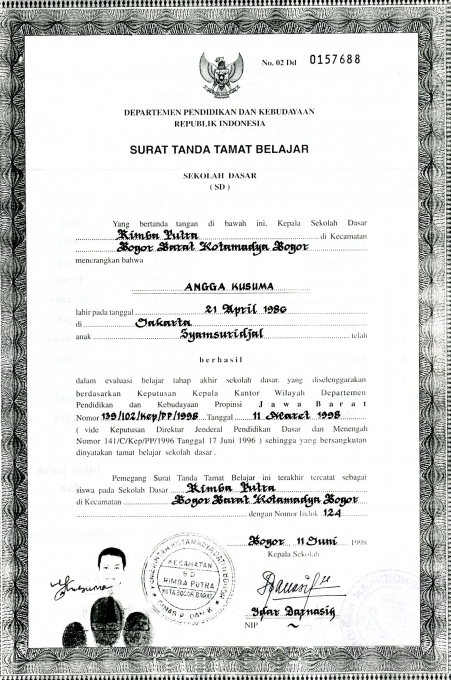 No. 02 Dd 0157688
DEPARTEMEN PENDIDIKAN DAN KEBUDAYAAN
REPUBLIK INDONESIA
SURAT TANDA TAMAT BELAJAR
SEKOLAH DASAR
( SD )
Yang bertanda tangan di bawah ini, Kepala Sekolah Dasar
Rimba Putra di Kecamatan
Bogor Barat Kotamadya Bogor
menerangkan bahwa
ANGGA KUSUMA
lahir pada tanggal 21 April 1986
di Jakarta
anak Syamsuridjal telah
berhasil
dalam evaluasi belajar tahap akhir sekolah dasar, yang diselenggarakan
berdasarkan Keputusan Kepala Kantor Wilayah Departemen
Pendidikan dan Kebudayaan Propinsi Jawa Barat
Nomor 139/102/Kep/PP/1998 Tanggal 11 Maret 1998
( vide Keputusan Direktur Jenderal Pendidikan Dasar dan Menengah
Nomor 141/C/Kep/PP/1996 Tanggal 17 Juni 1996 ) sehingga yang bersangkutan
dinyatakan tamat belajar sekolah dasar .
Pemegang Surat Tanda Tamat Belajar ini terakhir tercatat sebagai
siswa pada Sekolah Dasar Rimba Putra
di Kecamatan Bogor Barat Kotamadya Bogor
dengan Nomor Induk 124
Bogor 11 Juni 1998
Kepala Sekolah
KECAMATAN
SD
RIMBA PUTRA
KOTA BOGOR BARAT
NIP ~